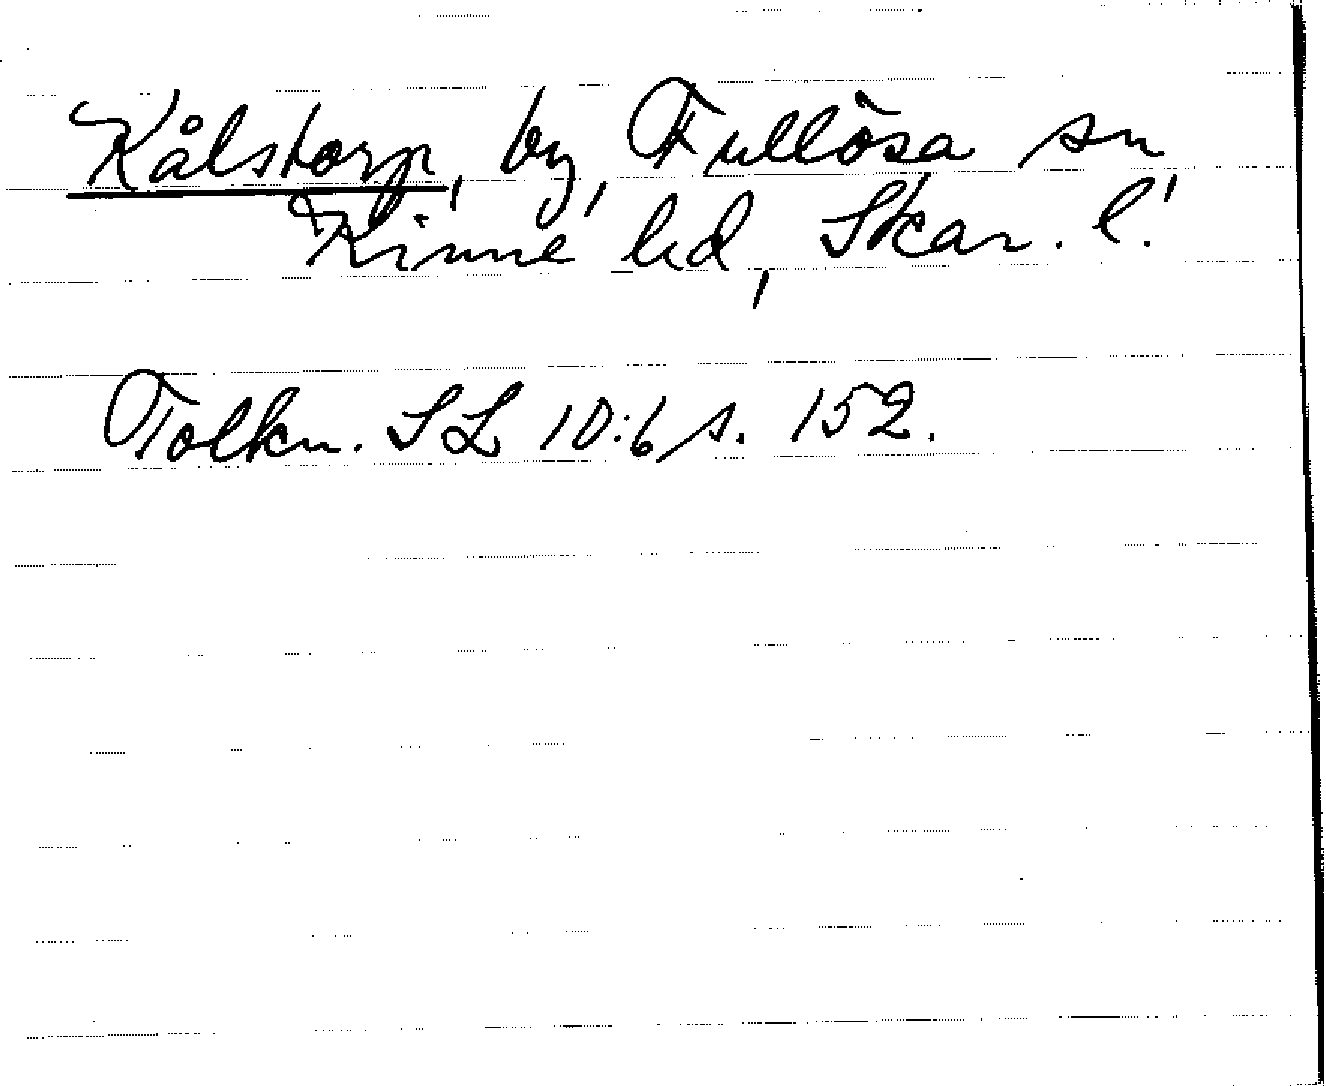 Kålstorp, by, Fullösa sn,
Kinne hd, Skar. l.
Tolkn. SL 10:6 s. 152.